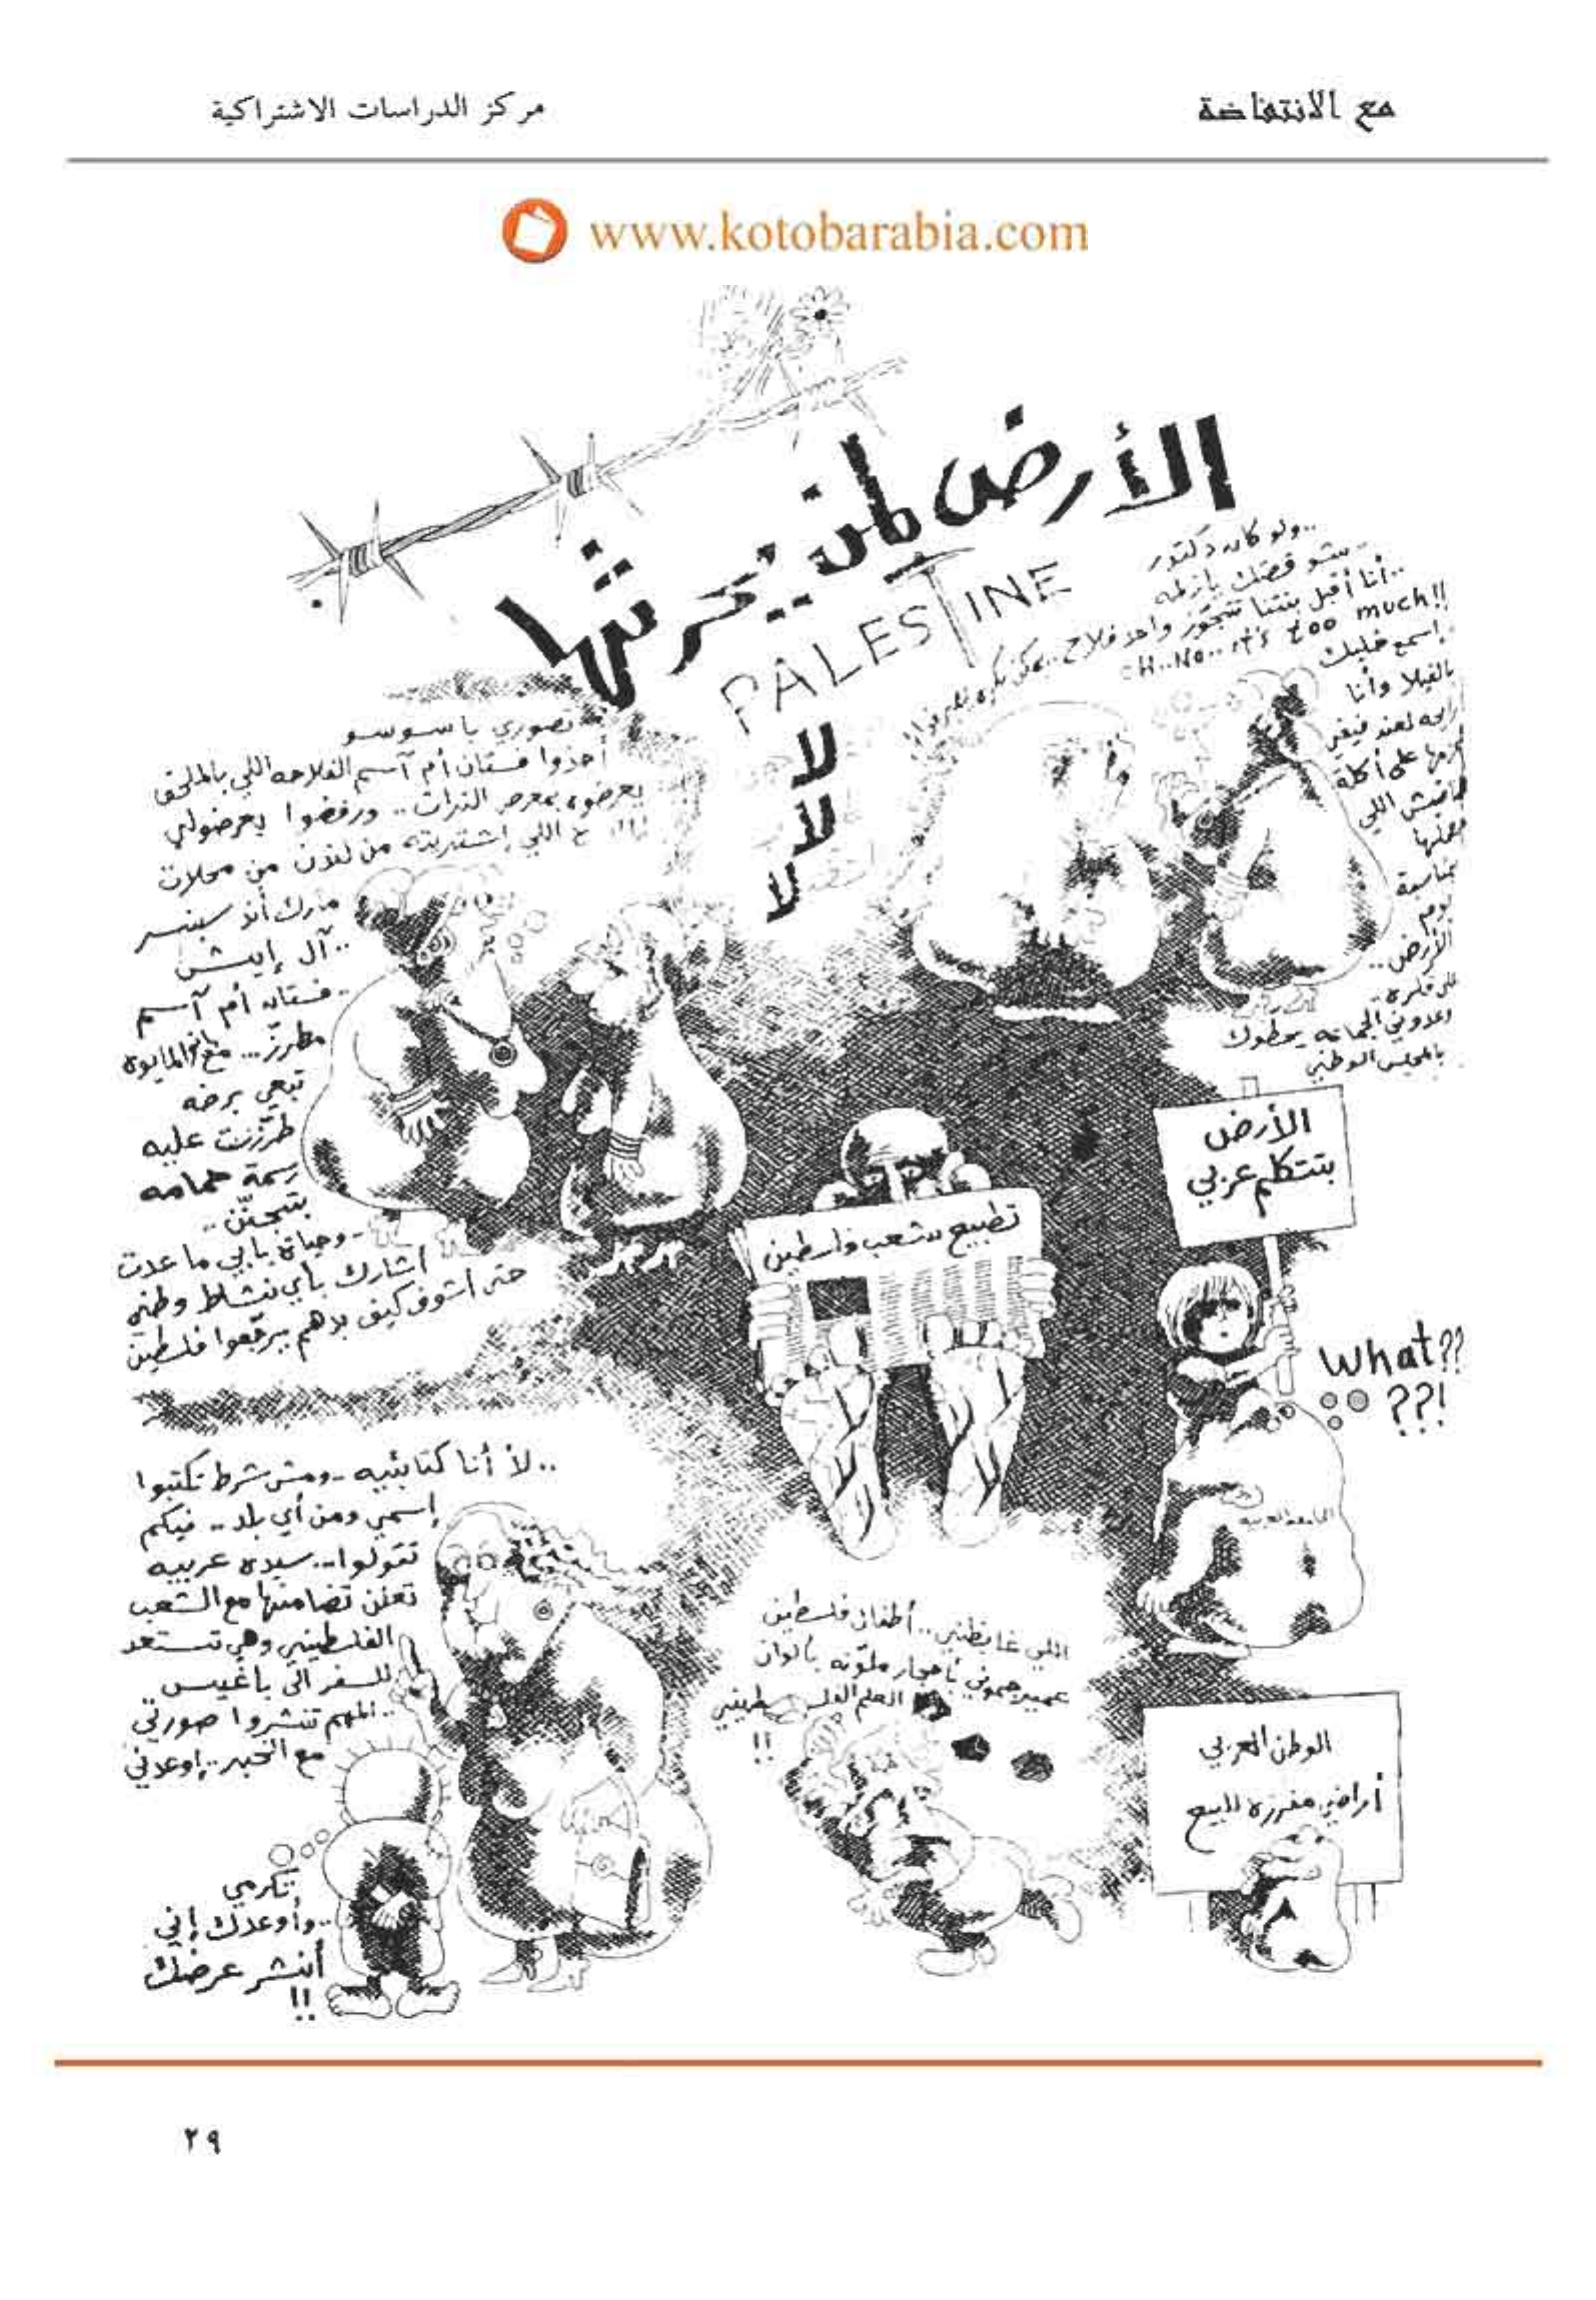 مع الانتفاضة
مركز الدراسات الاشتراكية
www.kotobarabia.com
الأرض لمن يحرثها
PALESTINE
لا
لا
لا
..ولو كان دكتور
..أنا أقبل بنتنا تتجوّز واحد فلاح..
OH..NO.. it's too much!!
إسمع خليك
بالفيلا وأنا
رايحه لعند فيفي
على أكلة
اللي
بمناسبة
يوم
الأرض..
يحطوك
بالمجلس الوطني
تصوري يا سوسو
أخذوا فستان أم آسم الفلاحه اللي بالملحق
يعرضوه بمعرض التراث.. ورفضوا يعرضولي
اللي إشتريته من لندن من محلات
مارك أند سبنسر
..آل إيش
..فستان أم آسم
مطرّز... مع
تبعي برضه
طرّزت عليه
رسمة حمامه
بتجنّن..
-وحياة يابي ما عدت
أشارك بأي نشاط وطني
حتى أشوف كيف بدهم يرقّعوا فلسطين
الأرض
بتتكلم عربي
What??
??!
الجامعة العربية
..لأ أنا كتائبيه-ومش شرط تكتبوا
إسمي ومن أي بلد.. فيكم
تقولوا...سيدة عربيه
تعلن تضامنها مع الشعب
الفلسطيني وهي تستعد
للسفر الى
..المهم تنشروا صورتي
مع الخبر..إوعدني
تكرمي
..وأوعدك إني
أنشر عرضك
!!
اللي غايظني.. أطفال فلسطين
بأحجار ملوّنه بألوان
العلم الفلسطيني
!!
الوطن العربي
أراضي مفرزة للبيع
٢٩